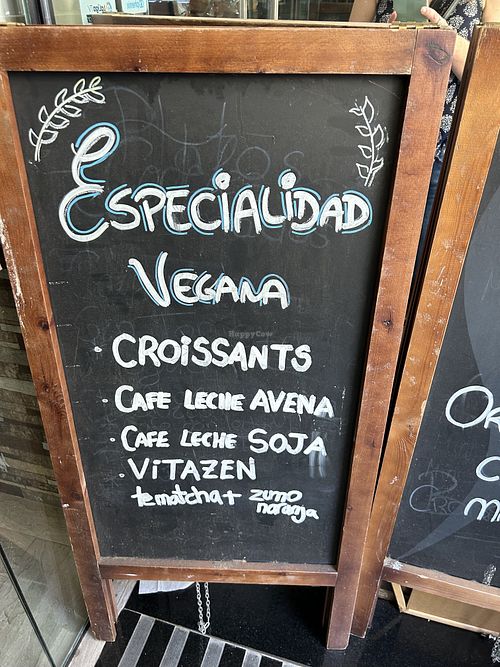 ESPECIALIDAD
VEGANA
· CROISSANTS
· CAFE LECHE AVENA
· CAFE LECHE SOJA
· VITAZEN
te matcha + zumo
naranja
HappyCow